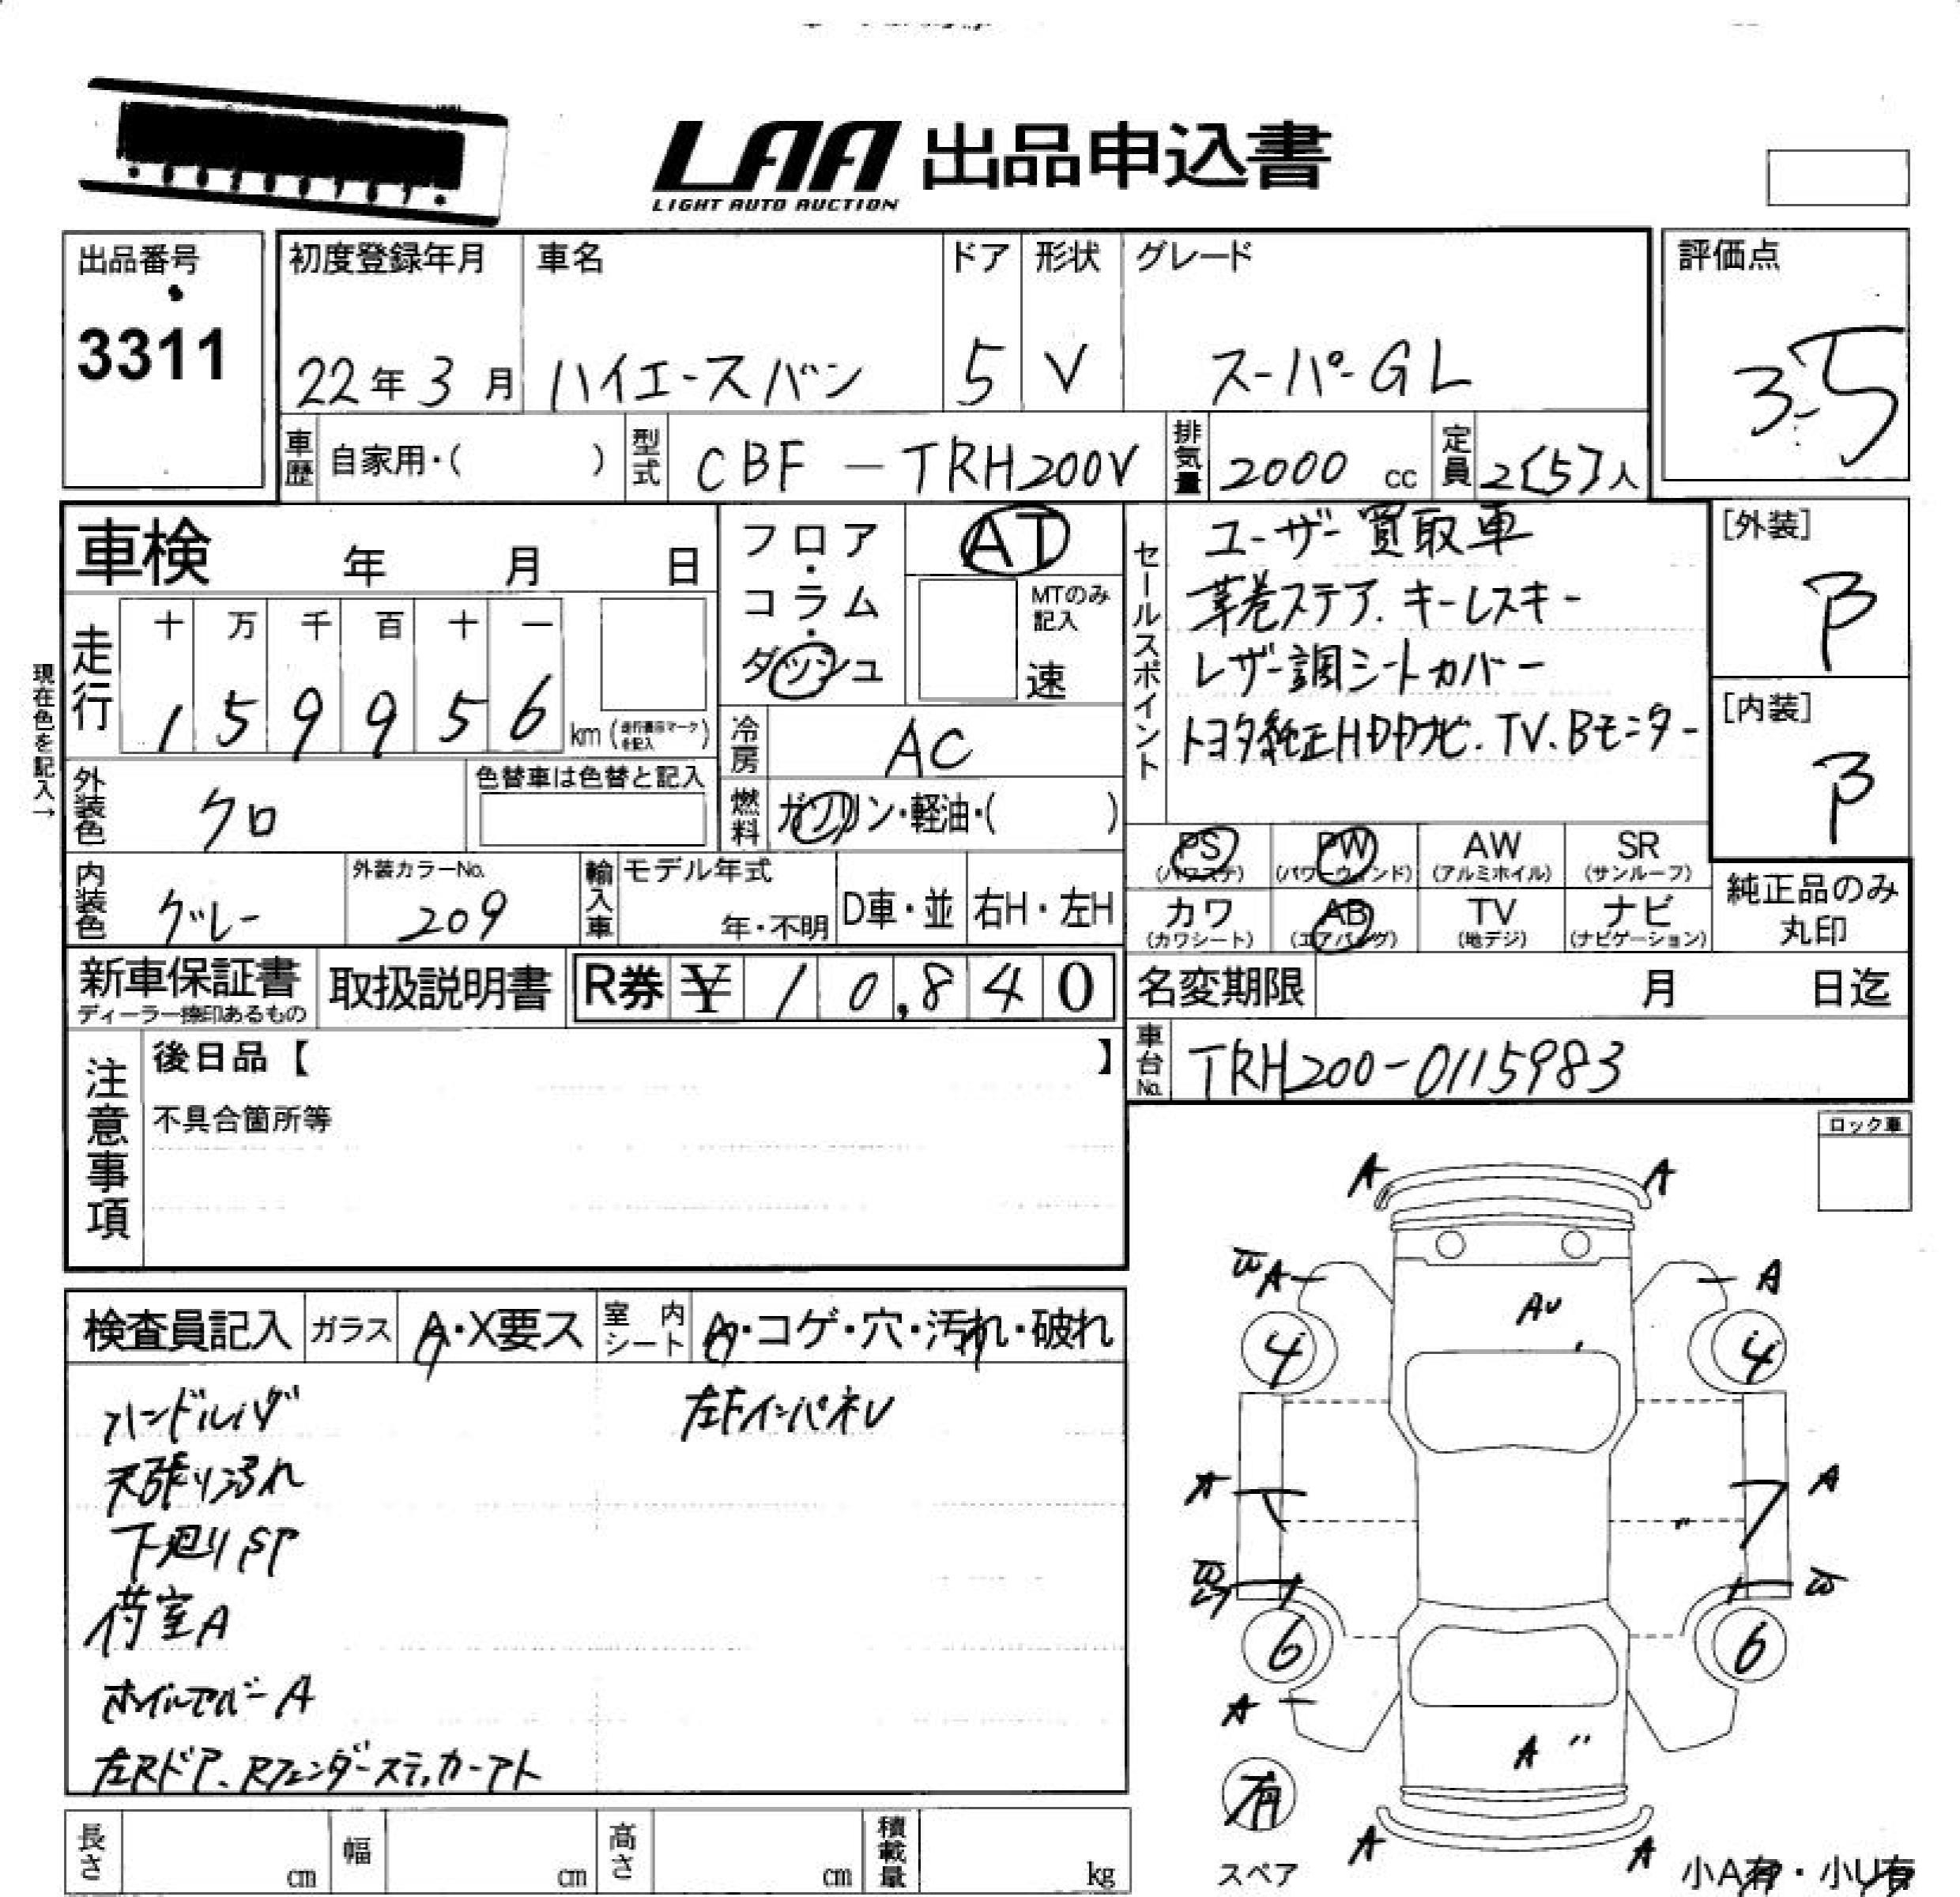 LAA 出品申込書
LIGHT AUTO AUCTION
出品番号
3311
初度登録年月
22年 3月
車名
ハイエースバン
ドア
5
形状
V
グレード
スーパーGL
評価点
3.5
車歴 自家用・( )
型式 CBF-TRH200V
排気量 2000 cc
定員 2[5]人
車検 年 月 日
走行
十 万 千 百 十 一
1 5 9 9 5 6 km
現在色を記入→
外装色 クロ
色替車は色替と記入
内装色 グレー
外装カラーNo.
209
フロア・コラム・ダッシュ
AT
MTのみ記入
速
冷房 AC
燃料 ガソリン・軽油・( )
輸入車
モデル年式
年・不明
D車・並
右H・左H
セールスポイント
ユーザー買取車
革巻ステア. キーレスキー
レザー調シートカバー
トヨタ純正HDDナビ. TV. Bモニター
[外装]
β
[内装]
β
PS
(パワステ)
PW
(パワーウィンド)
AW
(アルミホイル)
SR
(サンルーフ)
カワ
(カワシート)
AB
(エアバッグ)
TV
(地デジ)
ナビ
(ナビゲーション)
純正品のみ
丸印
新車保証書
ディーラー捺印あるもの
取扱説明書
R券 ¥ 10,840
名変期限 月 日迄
車台No. TRH200-0115983
注意事項
後日品【 】
不具合箇所等
ロック車
検査員記入
ガラス A・X要ス
室内シート A・コゲ・穴・汚れ・破れ
ハンドルハゲ
左FインパネU
天張り汚れ
下廻りSP
荷室A
ホイルカバーA
左Rドア、Rフェンダーステッカーアト
A A
A A
AU
4 4
A A
6 6
A
A
有
スペア
A A
小A有・小U有
長さ cm
幅 cm
高さ cm
積載量 kg